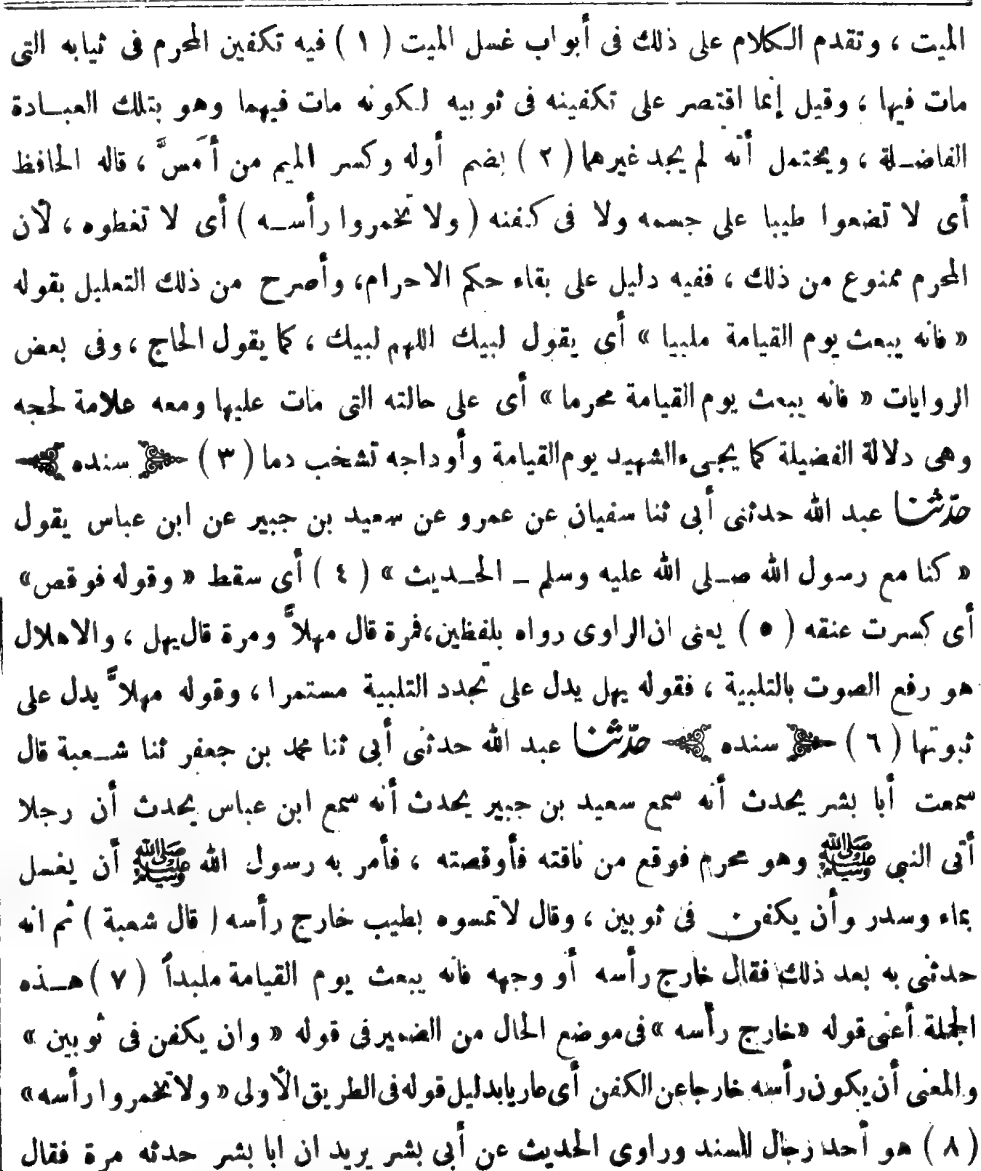 الميت ، وتقدم الكلام على ذلك فى أبواب غسل الميت ( ١ ) فيه تكفين المحرم فى ثيابه التى
مات فيها ، وقيل إنما اقتصر على تكفينه فى ثوبيه لكونه مات فيهما وهو بتلك العبادة
الفاضلة ، ويحتمل أنه لم يجد غيرهما ( ٢ ) بضم أوله وكسر الميم من أَمسَّ ، قاله الحافظ
أى لا تضعوا طيبا على جسمه ولا فى كفنه ( ولا تخمروا رأسه ) أى لا تغطوه ، لأن
المحرم ممنوع من ذلك ، ففيه دليل على بقاء حكم الاحرام، وأصرح من ذلك التعليل بقوله
« فانه يبعث يوم القيامة ملبيا » أى يقول لبيك اللهم لبيك ، كما يقول الحاج ، وفى بعض
الروايات « فانه يبعث يوم القيامة محرما » أى على حالته التى مات عليها ومعه علامة لحجه
وهى دلالة الفضيلة كما يجىء الشهيد يوم القيامة وأوداجه تشخب دما ( ٣ ) سنده
حدّثنا عبد الله حدثنى أبى ثنا سفيان عن عمرو عن سعيد بن جبير عن ابن عباس يقول
« كنا مع رسول الله صلى الله عليه وسلم ــ الحديث » ( ٤ ) أى سقط « وقوله فوقص»
أى كسرت عنقه ( ٥ ) يعنى ان الراوى رواه بلفظين،فمرة قال مهلاًّ ومرة قال يهل ، والاهلال
هو رفع الصوت بالتلبية ، فقوله يهل يدل على تجدد التلبية مستمرا ، وقوله مهلاًّ يدل على
ثبوتها ( ٦ ) سنده حدّثنا عبد الله حدثنى أبى ثنا محمد بن جعفر ثنا شعبة قال
سمعت أبا بشر يحدث أنه سمع سعيد بن جبير يحدث أنه سمع ابن عباس يحدث أن رجلا
أتى النبى ﷺ وهو محرم فوقع من ناقته فأوقصته ، فأمر به رسول الله ﷺ أن يغسل
بماء وسدر وأن يكفن فى ثوبين ، وقال لا تمسوه بطيب خارج رأسه ( قال شعبة ) ثم انه
حدثنى به بعد ذلك فقال خارج رأسه أو وجهه فانه يبعث يوم القيامة ملبداً ( ٧ ) هذه
الجملة أعنى قوله «خارج رأسه » فى موضع الحال من الضمير فى قوله « وان يكفن فى ثوبين »
والمعنى أن يكون رأسه خارجا عن الكفن أى عاريا بدليل قوله فى الطريق الأولى « ولا تخمروا رأسه»
( ٨ ) هو أحد رجال السند وراوى الحديث عن أبى بشر يريد ان ابا بشر حدثه مرة فقال